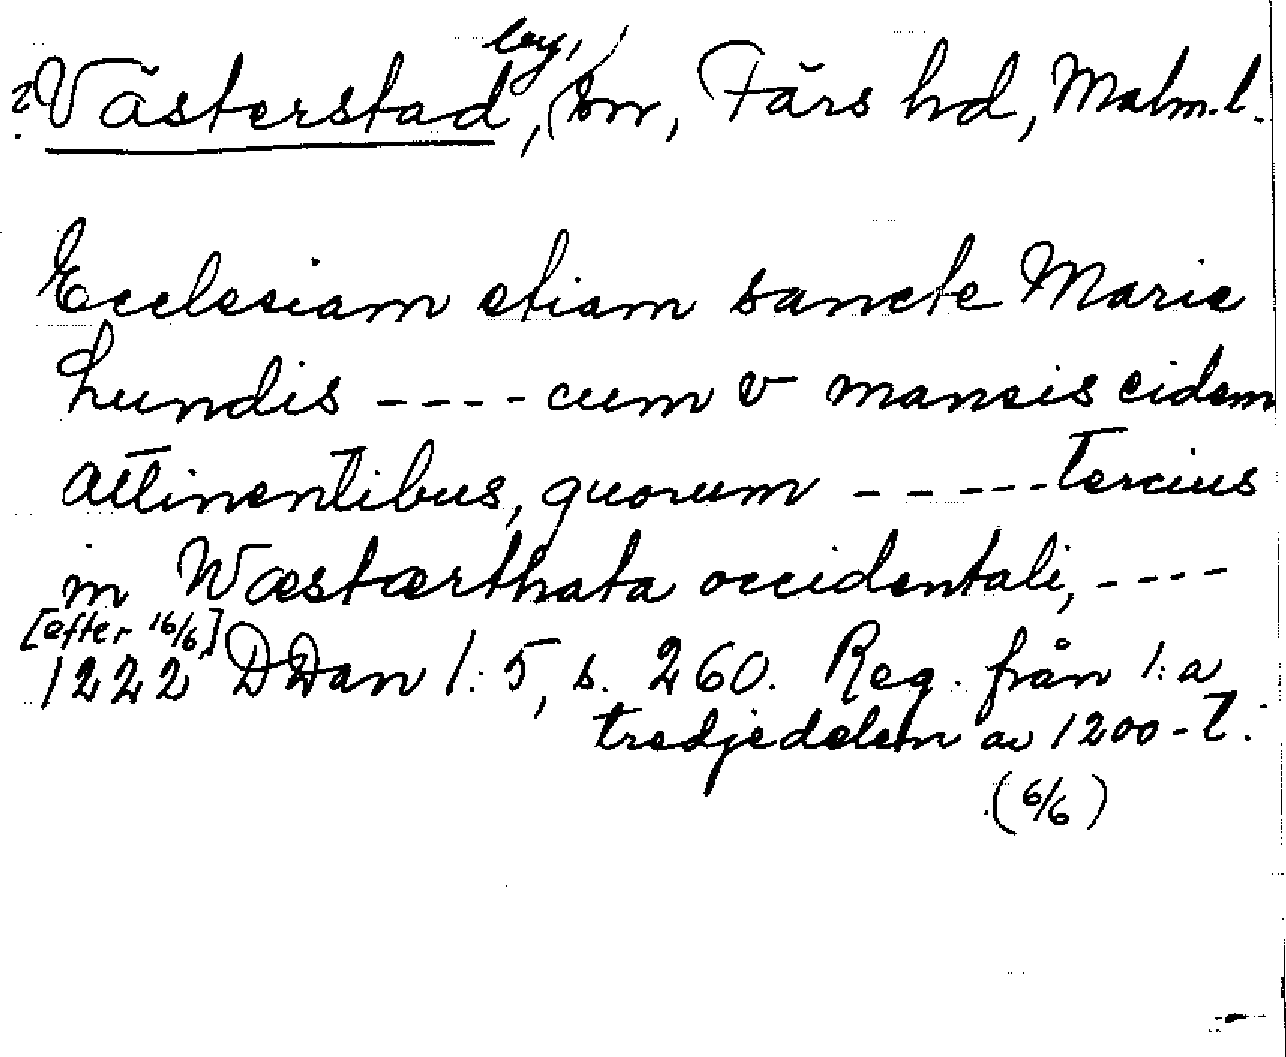 by,
? Västerstad, (sn, Färs hd, Malm. l.
Ecclesiam etiam sancte Marie
Lundis ---- cum v mansis eidem
attinentibus, quorum ----- tercius
in Wæstærthata occidentali, ----
[efter 16/6]
1222 DDan 1:5, s. 260. Reg. från 1:a
tredjedelen av 1200-t.
(6/6)